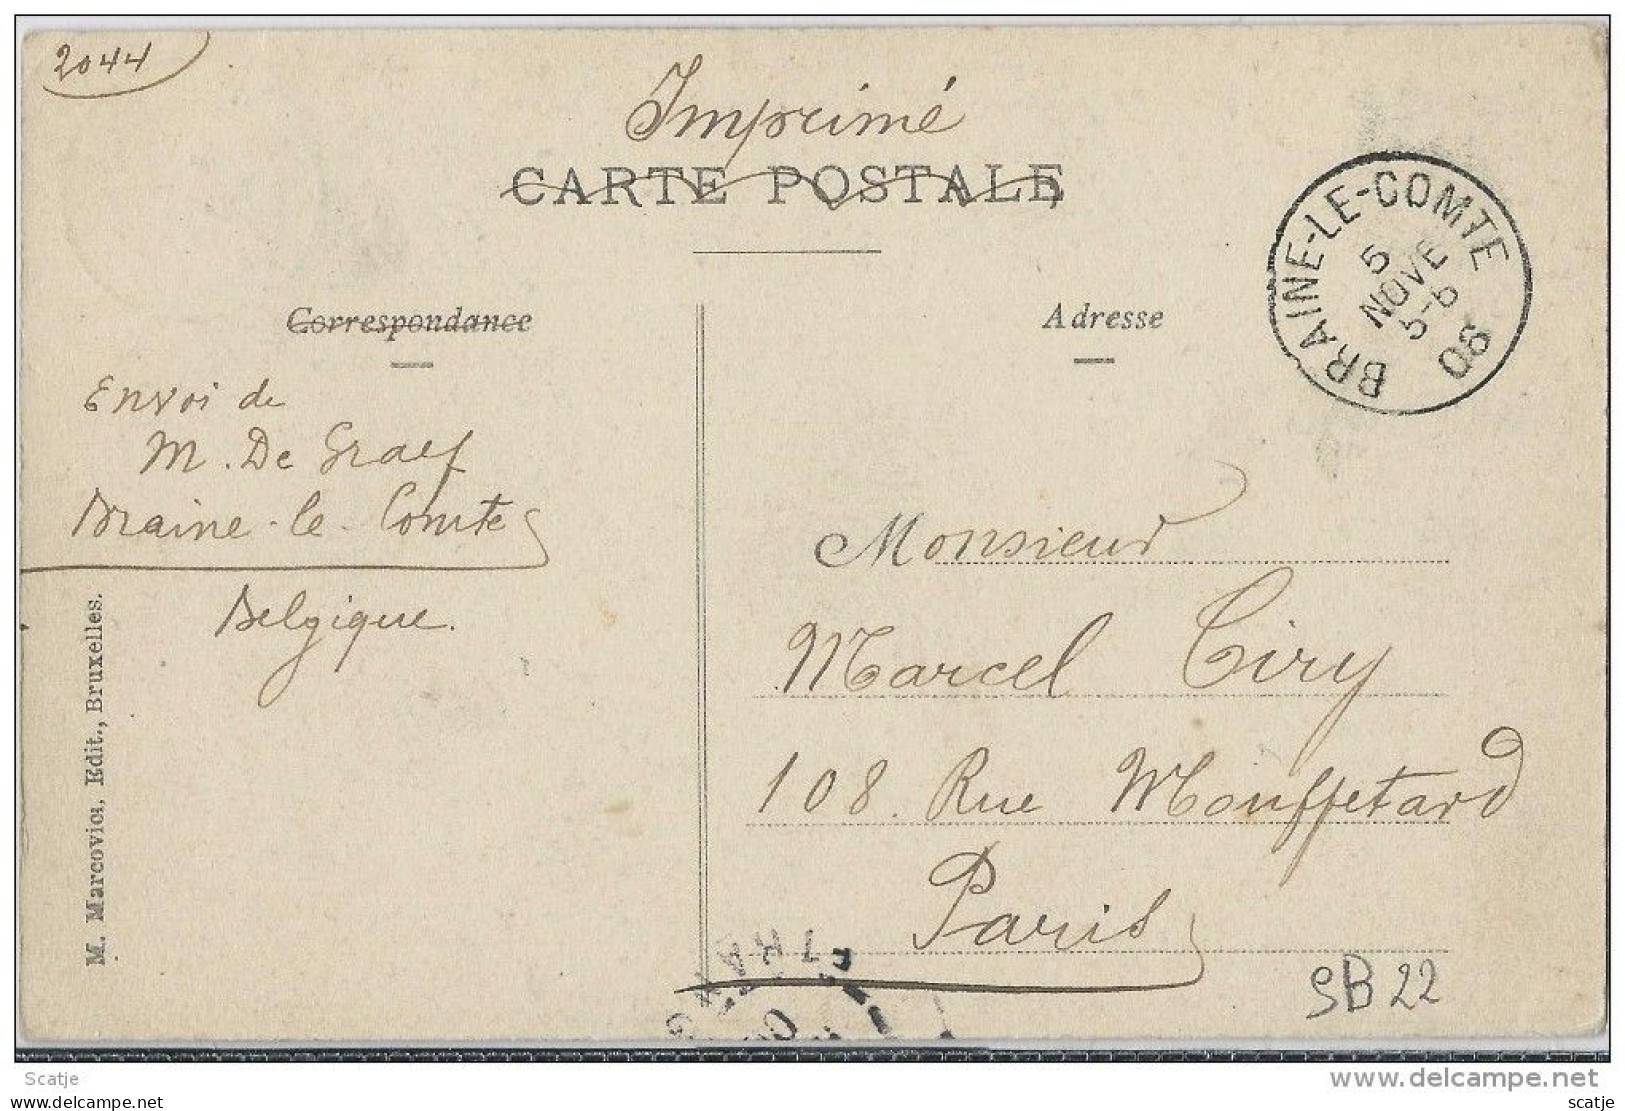 2044
Imprimé
CARTE POSTALE
BRAINE-LE-COMTE
5
NOVE
5-6
08
Correspondance
Adresse
Envoi de
M. De Graef
Braine-le-Comte
Belgique.
Monsieur
Marcel Ciry
108. Rue Mouffetard
Paris
M. Marcovici, Edit., Bruxelles.
SB 22
Scatje
scatje
www.delcampe.net
scatje